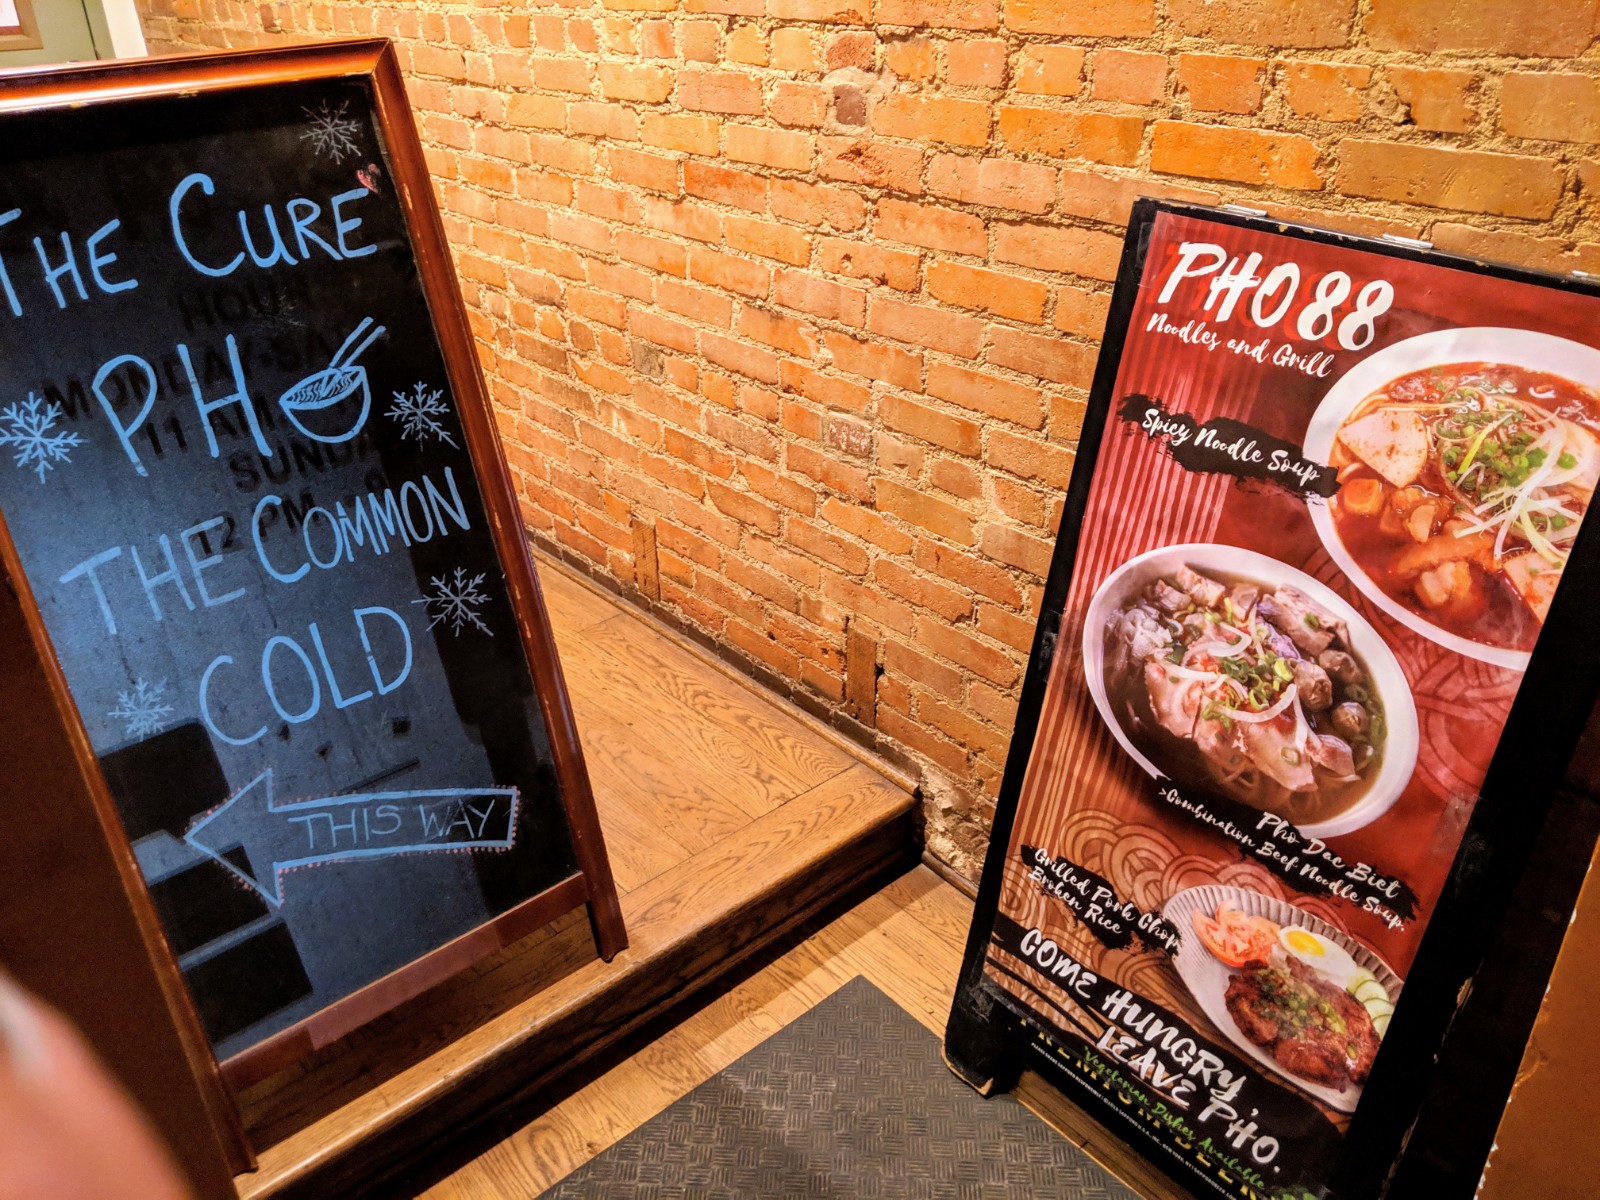 THE CURE
PHO
THE COMMON
COLD
THIS WAY
HOUR
MONDAY-SAT
11 AM
SUNDA
12 PM
PHO 88
Noodles and Grill
Spicy Noodle Soup
Pho Dac Biet
>Combination Beef Noodle Soup.
Grilled Pork Chop
Broken Rice
COME HUNGRY,
LEAVE PHO.
Vegetarian Dishes Available